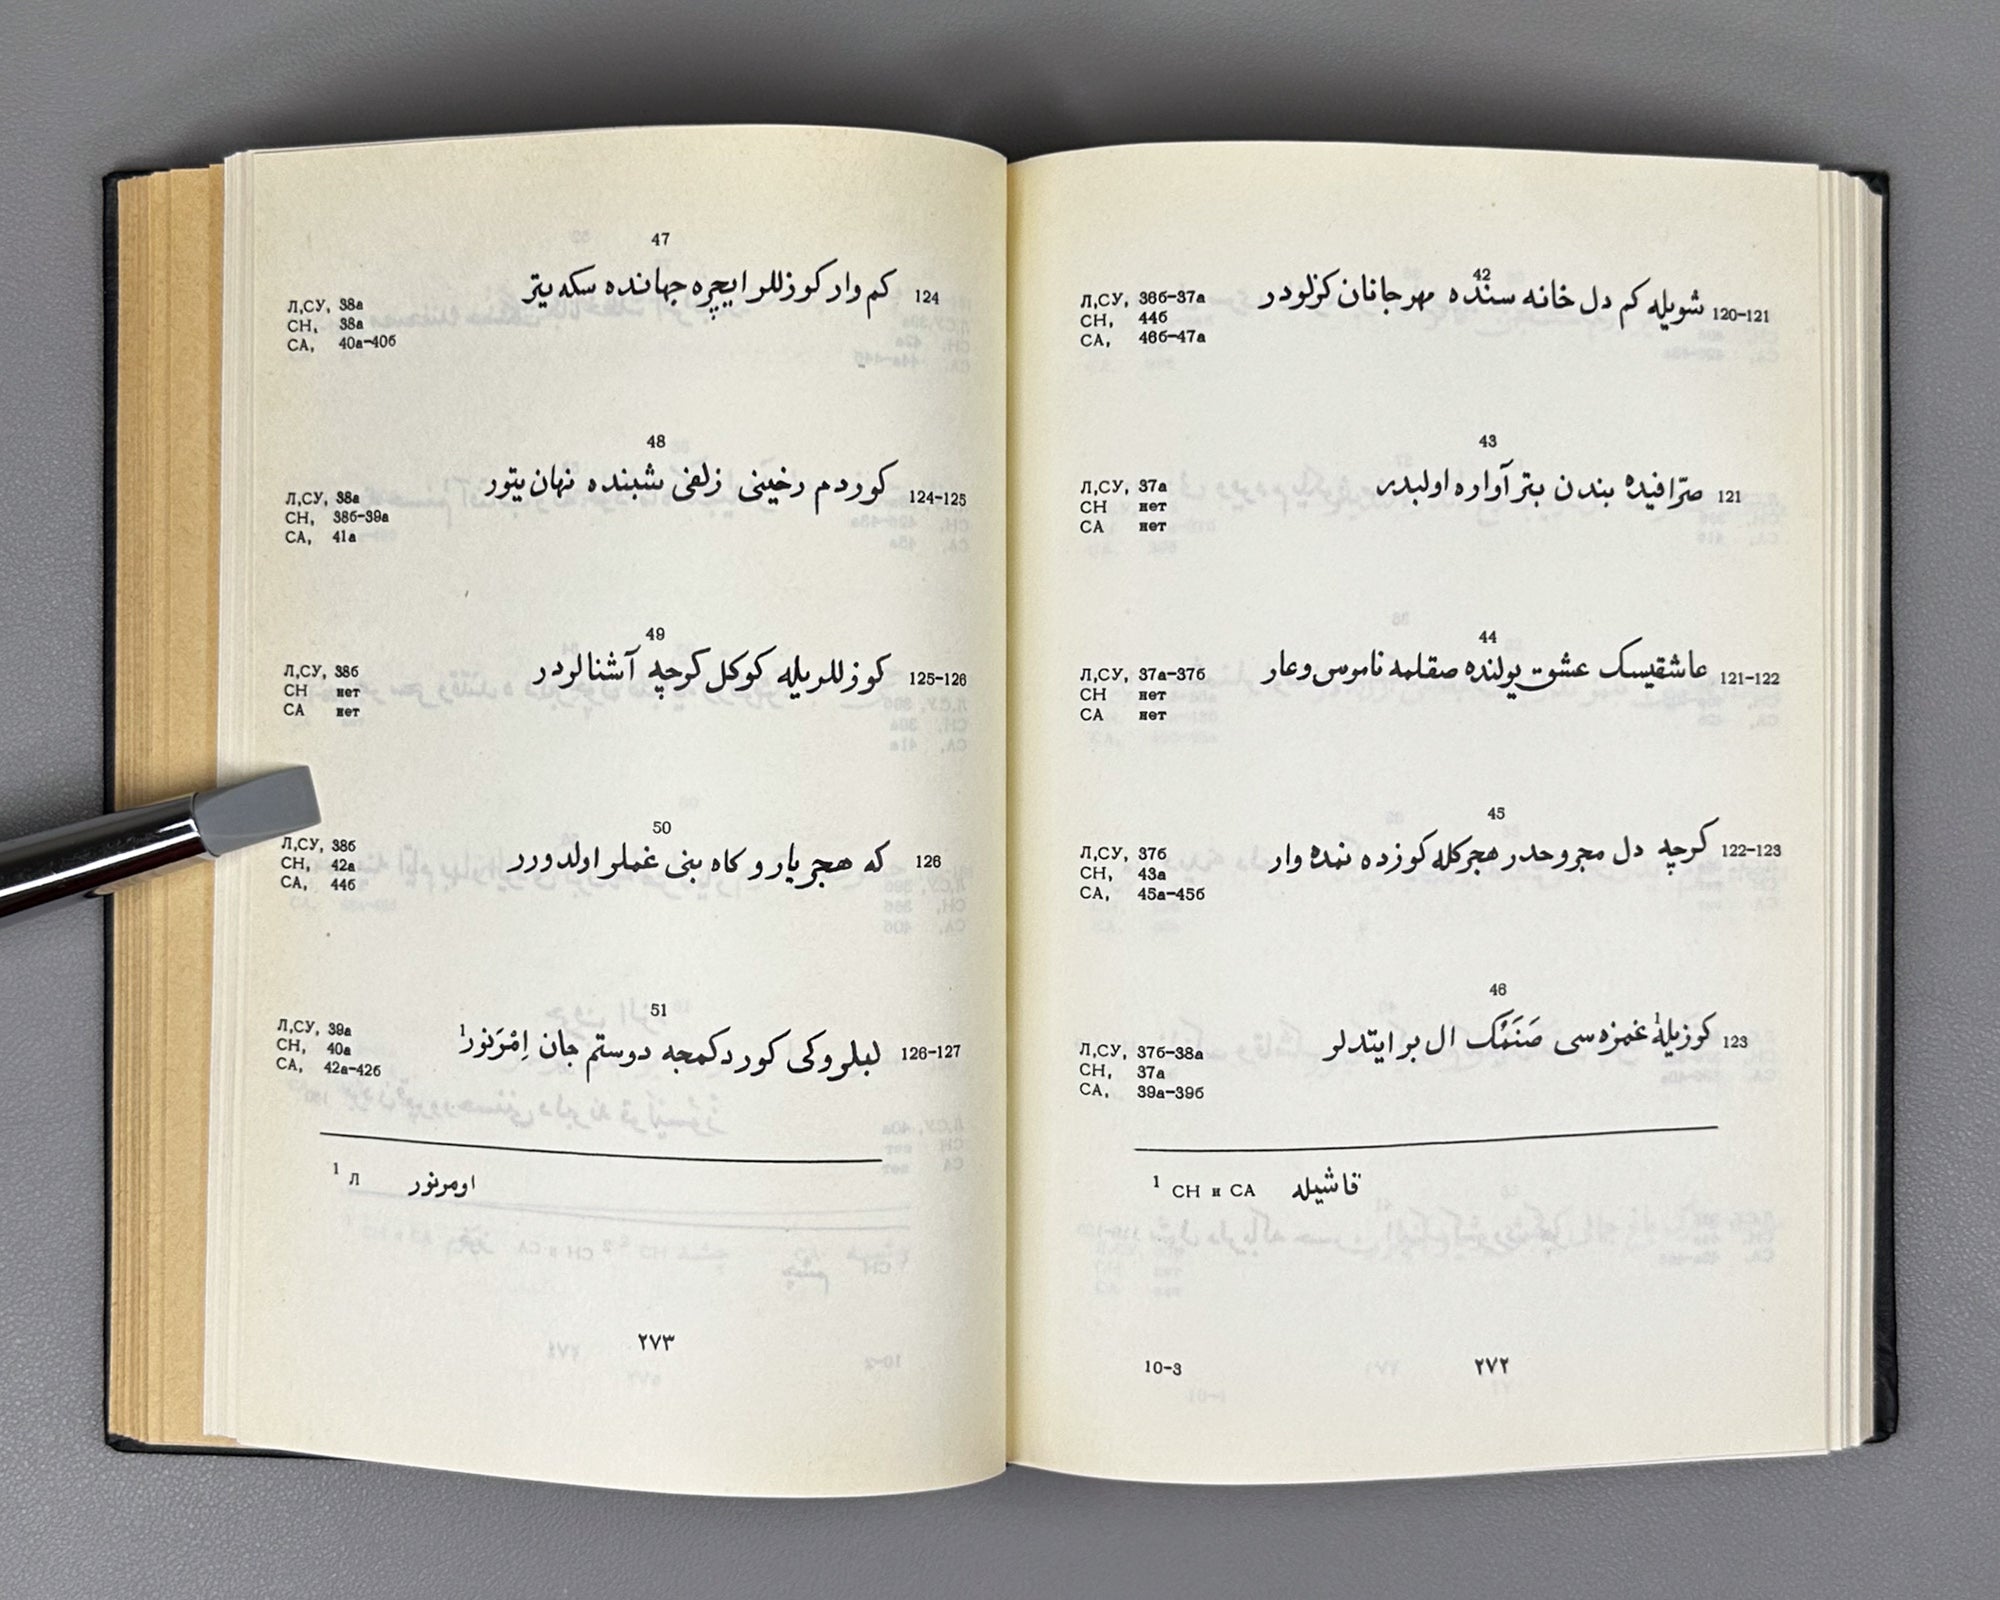 42
شویله کم دل خانه سنده مهر جانان کزلودر 120-121
Л,СУ, 36б-37а
СН, 44б
СА, 46б-47а
43
صرّافیده بندن بتر آواره اولبدر 121
Л,СУ, 37а
СН нет
СА нет
44
عاشقیسک عشق یولنده صقلمه ناموسی وعار 121-122
Л,СУ, 37а-37б
СН нет
СА нет
45
کرچه دل مجروحدر هجرکله کوزده نمده وار 122-123
Л,СУ, 37б
СН, 43а
СА, 45а-45б
46
کوزیله¹ غمزه سی صَنَمُک ال بر ایتدلر 123
Л,СУ, 37б-38а
СН, 37а
СА, 39а-39б
¹ СН и СА قاشیله
10-3 ۲۷۲
47
کم وار کوزللر ایچره جهانده سکه یتر 124
Л,СУ, 38а
СН, 38а
СА, 40а-40б
48
کوردم رخینی زلفی شبنده نهان یتور 124-125
Л,СУ, 38а
СН, 38б-39а
СА, 41а
49
کوزللریله کوکل کرچه آشنالردر 125-126
Л,СУ, 38б
СН нет
СА нет
50
که هجر یار و کاه بنی غملر اولدورر 126
Л,СУ, 38б
СН, 42а
СА, 44б
51
لبلروکی کوردکمجه دوستم جان اِمْرَنور¹ 126-127
Л,СУ, 39а
СН, 40а
СА, 42а-42б
¹ Л اومرنور
۲۷۳